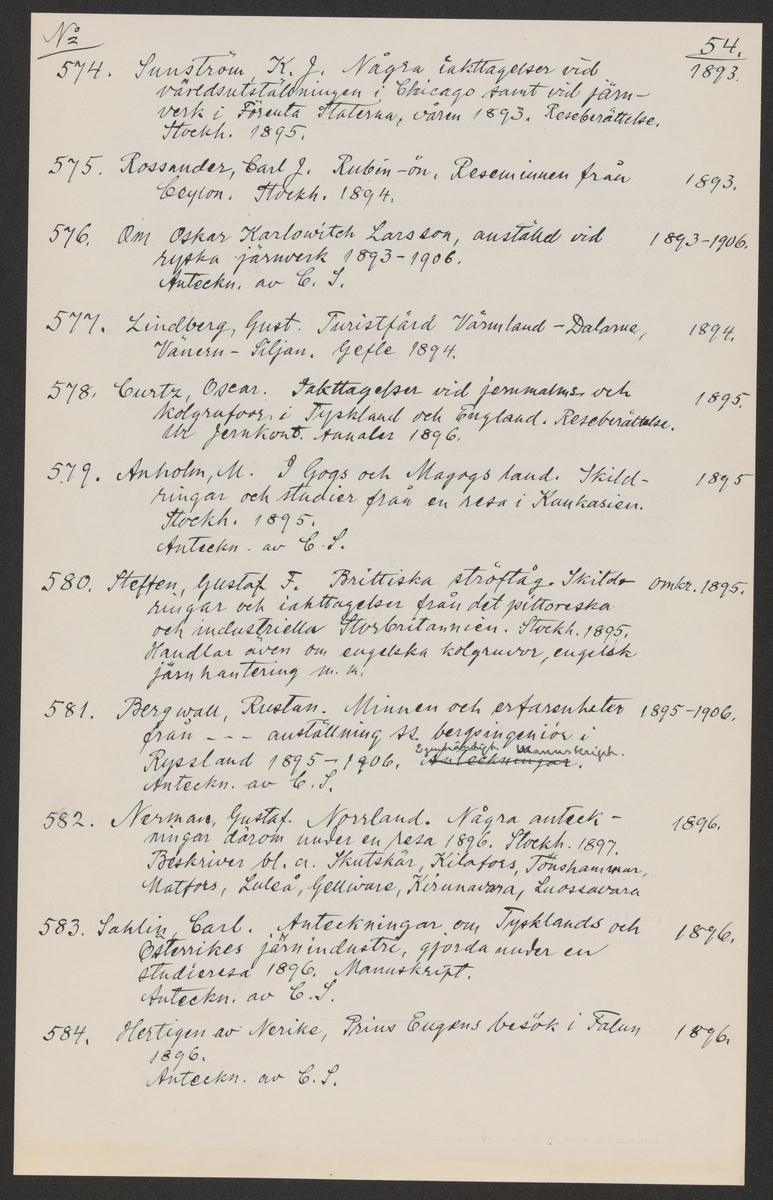 No
54.
574. Sunström, K. J. Några iakttagelser vid 1893.
världsutställningen i Chicago samt vid järn-
verk i Förenta Staterna, våren 1893. Reseberättelse.
Stockh. 1895.
575. Rossander, Carl J. Rubin-ön. Reseminnen från 1893.
Ceylon. Stockh. 1894.
576. Om Oskar Karlowitch Larsson, anställd vid 1893-1906.
ryska järnverk 1893-1906.
Anteckn. av C. S.
577. Lindberg, Gust. Turistfärd Värmland-Dalarne, 1894.
Vänern-Siljan. Gefle 1894.
578. Curtz, Oscar. Iakttagelser vid jernmalms- och 1895.
kolgrufvor i Tyskland och England. Reseberättelse.
Ur Jernkont. Annaler 1896.
579. Anholm, M. I Gogs och Magogs land. Skild- 1895
ringar och studier från en resa i Kaukasien.
Stockh. 1895.
Anteckn. av C. S.
580. Steffen, Gustaf F. Brittiska ströftåg. Skild- omkr. 1895.
ringar och iakttagelser från det pittoreska
och industriella Storbritannien. Stockh. 1895.
Handlar även om engelska kolgruvor, engelsk
järnhantering m. m.
581. Bergwall, Rustan. Minnen och erfarenheter 1895-1906.
från --- anställning ss. bergsingeniör i
Egenhändigt Manuskript.
Ryssland 1895-1906. Anteckningar.
Anteckn. av C. S.
582. Nerman, Gustaf. Norrland. Några anteck- 1896.
ningar därom under en resa 1896. Stockh. 1897.
Beskriver bl. a. Skutskär, Kilafors, Tönshammar,
Matfors, Luleå, Gellivare, Kirunavara, Luossavara
583. Sahlin, Carl. Anteckningar om Tysklands och 1896.
Österrikes järnindustri, gjorda under en
studieresa 1896. Manuskript.
Anteckn. av C. S.
584. Hertigen av Nerike, Prins Eugens besök i Falun 1896.
1896.
Anteckn. av C. S.